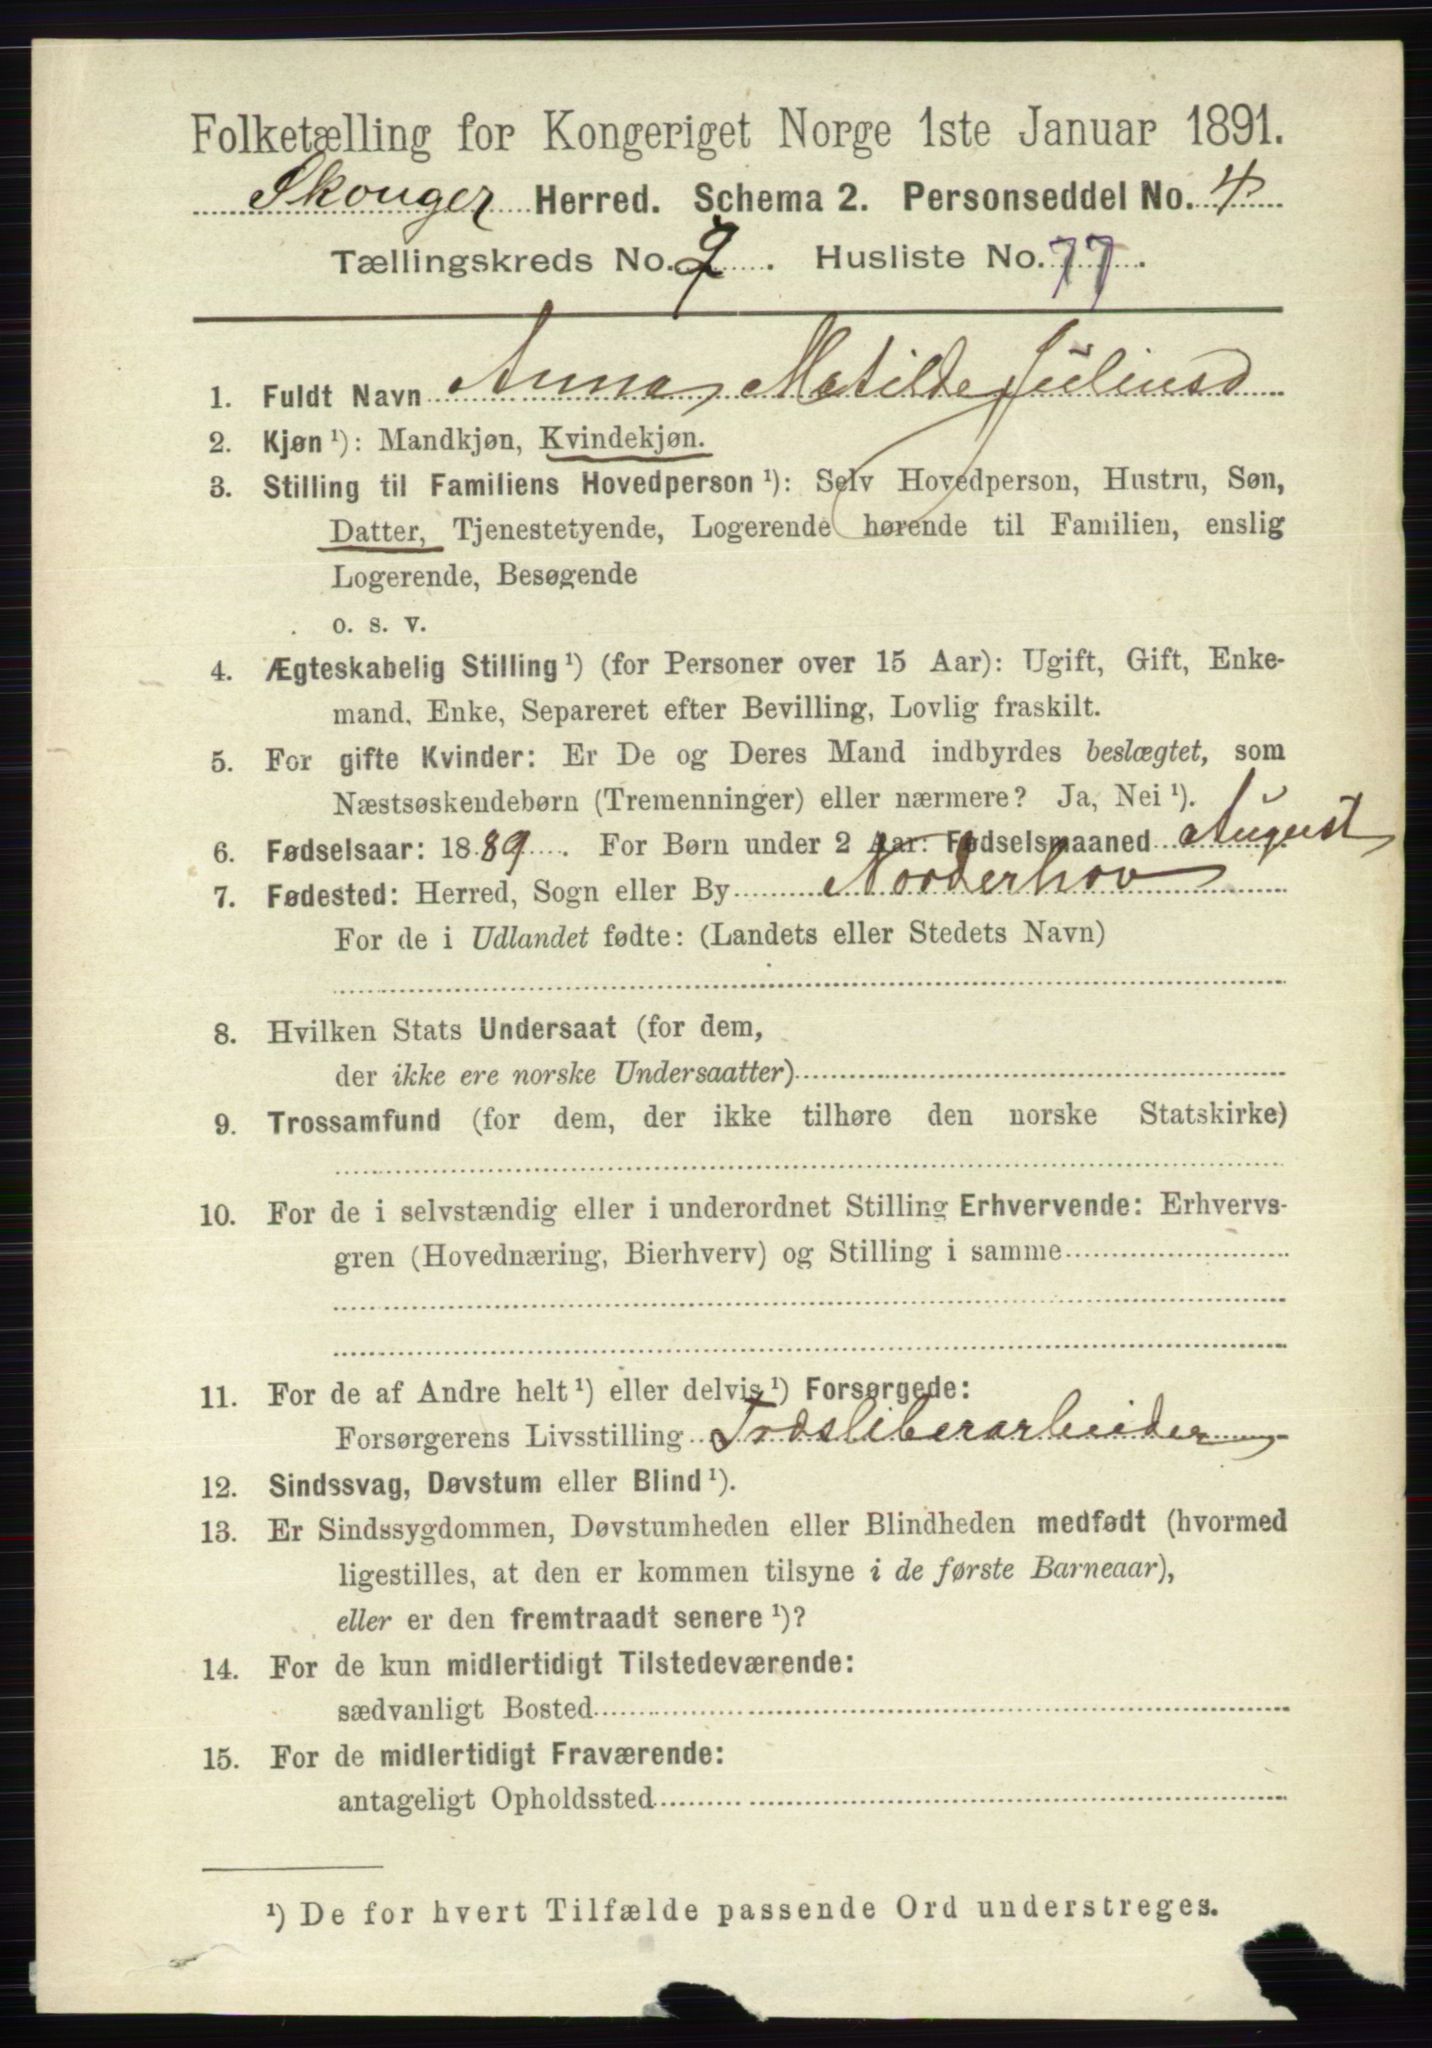 Folketælling for Kongeriget Norge 1ste Januar 1891.
Skouger Herred. Schema 2. Personseddel No. 4
Tællingskreds No. 7. Husliste No. 77.
1. Fuldt Navn Anna Matilde Juliusd
2. Kjøn ¹): Mandkjøn, Kvindekjøn.
3. Stilling til Familiens Hovedperson ¹): Selv Hovedperson, Hustru, Søn,
Datter, Tjenestetyende, Logerende hørende til Familien, enslig
Logerende, Besøgende
o. s. v.
4. Ægteskabelig Stilling ¹) (for Personer over 15 Aar): Ugift, Gift, Enke-
mand, Enke, Separeret efter Bevilling, Lovlig fraskilt.
5. For gifte Kvinder: Er De og Deres Mand indbyrdes beslægtet, som
Næstsøskendebørn (Tremenninger) eller nærmere? Ja, Nei ¹).
6. Fødselsaar: 1889. For Børn under 2 Aar: Fødselsmaaned August
7. Fødested: Herred, Sogn eller By Norderhov
For de i Udlandet fødte: (Landets eller Stedets Navn)
8. Hvilken Stats Undersaat (for dem,
der ikke ere norske Undersaatter)
9. Trossamfund (for dem, der ikke tilhøre den norske Statskirke)
10. For de i selvstændig eller i underordnet Stilling Erhvervende: Erhvervs-
gren (Hovednæring, Bierhverv) og Stilling i samme
11. For de af Andre helt ¹) eller delvis ¹) Forsørgede:
Forsørgerens Livsstilling Træsliberarbeider
12. Sindssvag, Døvstum eller Blind ¹).
13. Er Sindssygdommen, Døvstumheden eller Blindheden medfødt (hvormed
ligestilles, at den er kommen tilsyne i de første Barneaar),
eller er den fremtraadt senere ¹)?
14. For de kun midlertidigt Tilstedeværende:
sædvanligt Bosted
15. For de midlertidigt Fraværende:
antageligt Opholdssted
¹) De for hvert Tilfælde passende Ord understreges.